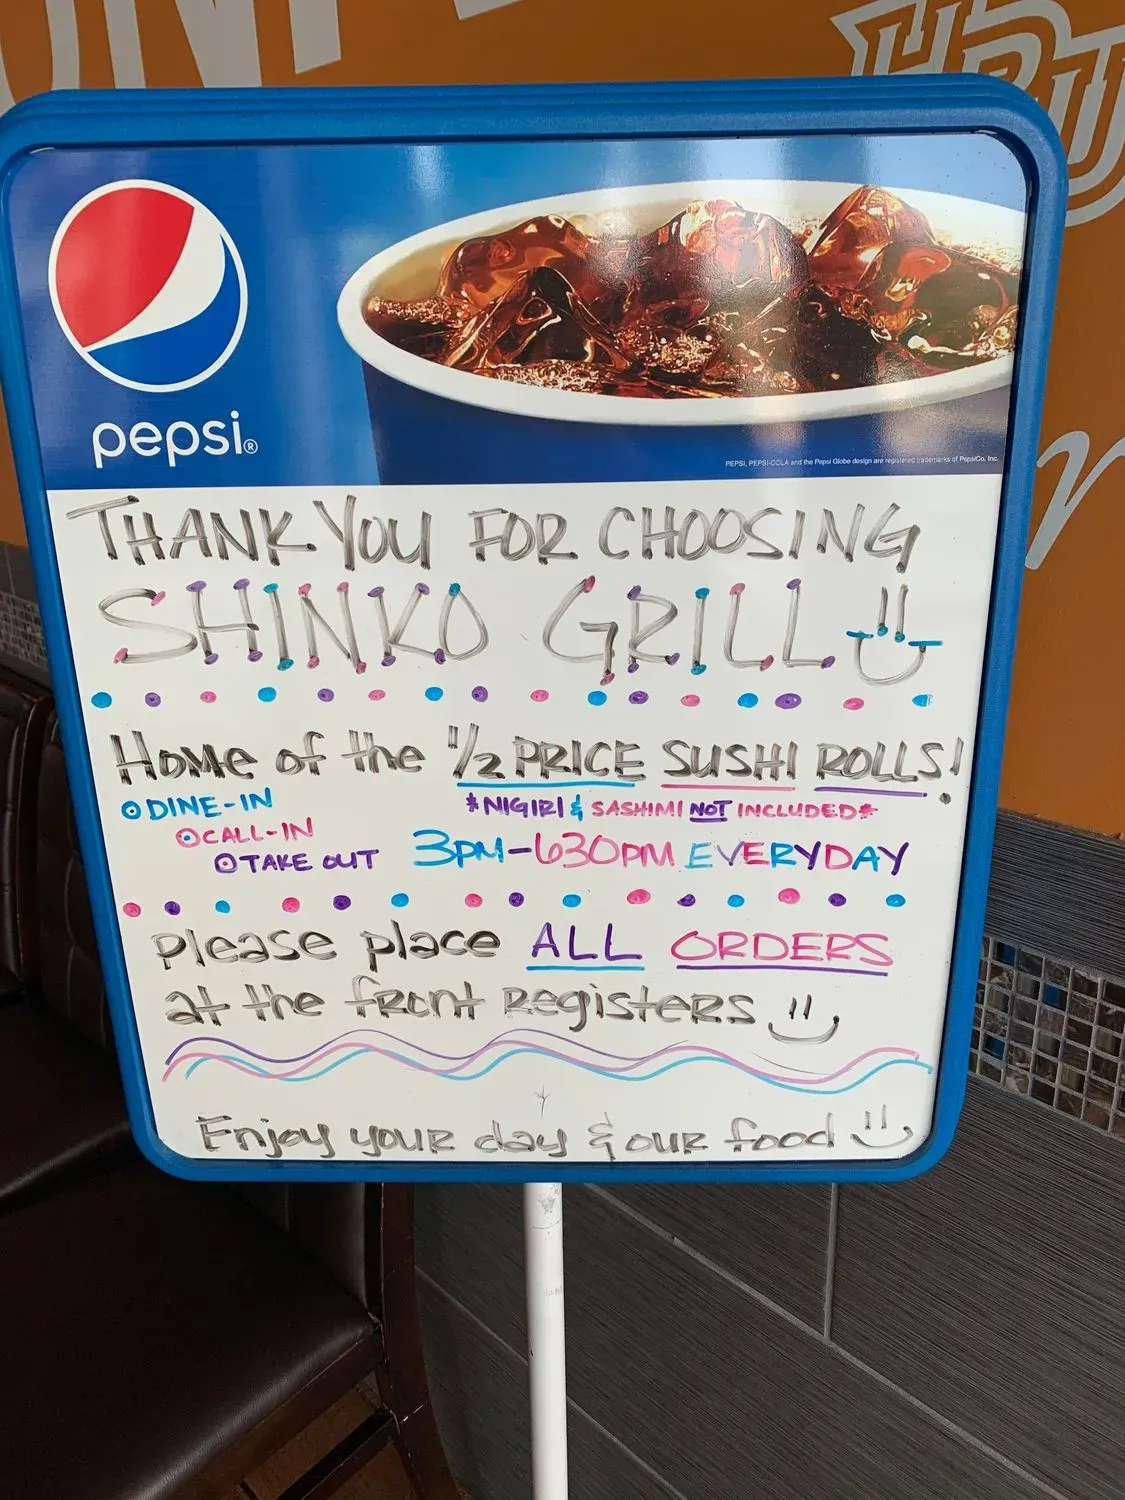 HPU
pepsi®
PEPSI, PEPSI-COLA and the Pepsi Globe design are registered trademarks of PepsiCo, Inc.
THANK YOU FOR CHOOSING
SHINKO GRILL
Home of the 1/2 PRICE SUSHI ROLLS!
DINE-IN
*NIGIRI & SASHIMI NOT INCLUDED*
CALL-IN
TAKE OUT
3PM-630PM EVERYDAY
Please place ALL ORDERS
at the front Registers
Enjoy your day & our food